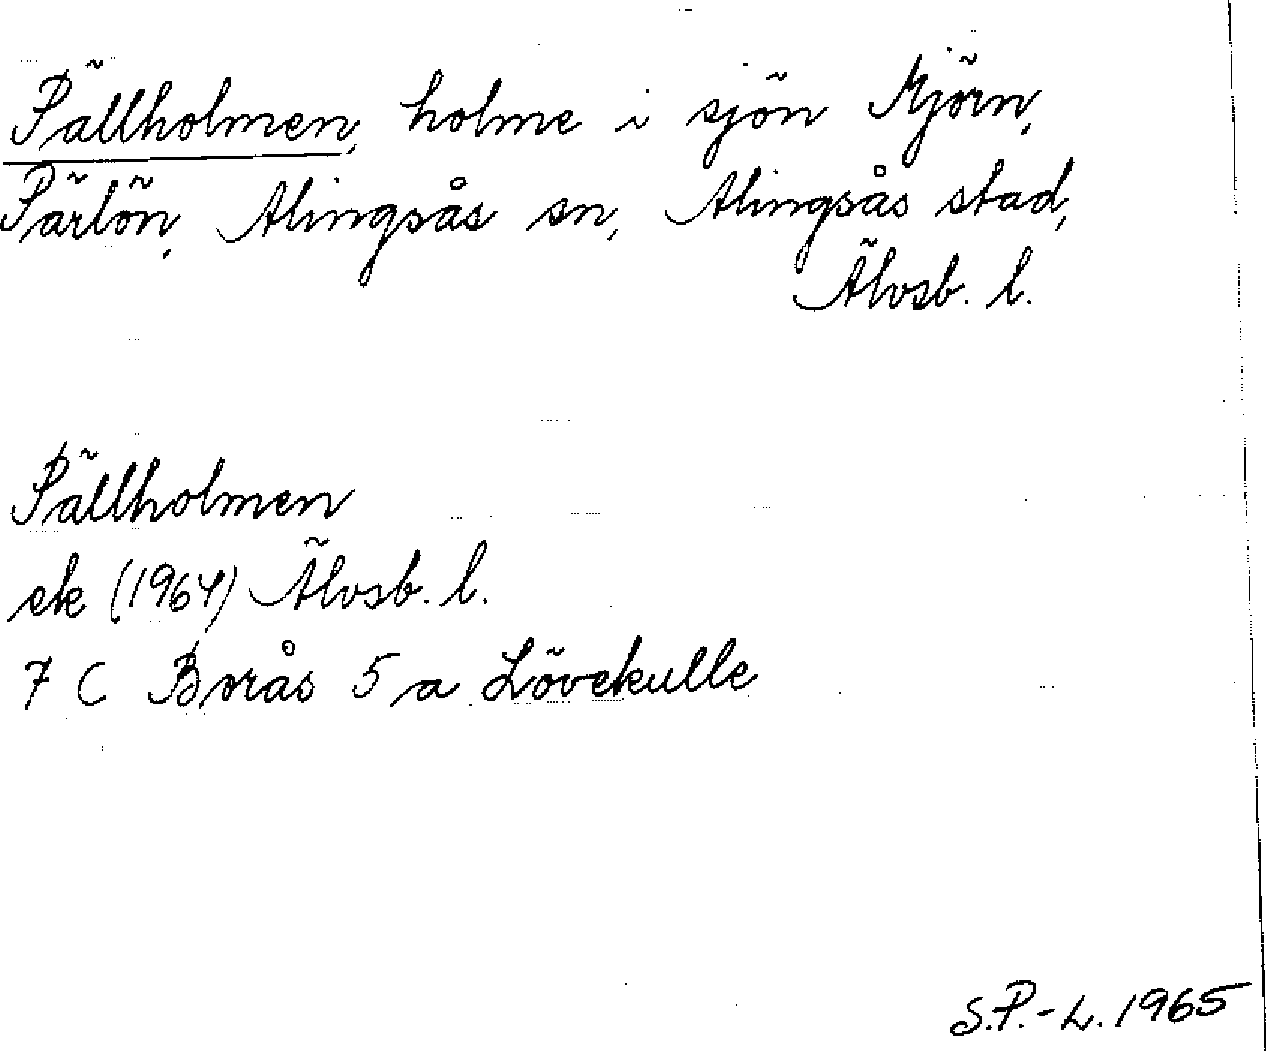 Pällholmen, holme i sjön Mjörn,
Pärlön, Alingsås sn, Alingsås stad,
Älvsb. l.
Pällholmen
ek (1964) Älvsb. l.
7 C Borås 5 a Lövekulle
S.P.-L. 1965